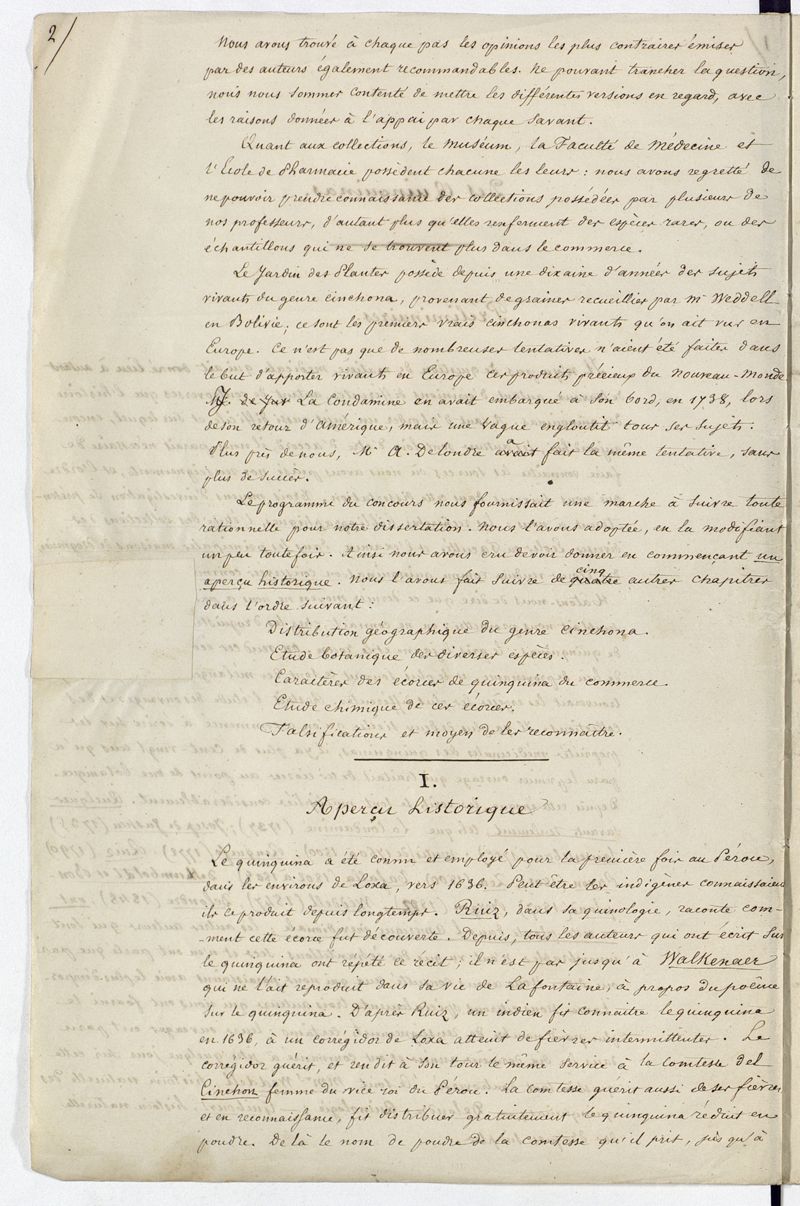 2/
Nous avons trouvé à chaque pas les opinions les plus contraires émises
par des auteurs également recommandables. Ne pouvant trancher la question,
nous nous sommes contenté de mettre les différentes versions en regard, avec
les raisons données à l'appui par chaque savant.
Quant aux collections, le muséum, la Faculté de Médecine et
l'Ecole de Pharmacie possèdent chacune les leurs : nous avons regretté de
ne pouvoir prendre connaissance des collections possédées par plusieurs de
nos professeurs, d'autant plus qu'elles renferment des espèces rares, ou des
échantillons qui ne se trouvent plus dans le commerce.
Le Jardin des Plantes possède depuis une dixaine d'années des sujets
vivants du genre cinchona, provenant de graines recueillies par Mr Weddell
en Bolivie ; ce sont les premiers vrais cinchonas vivants qu'on ait vus en
Europe. Ce n'est pas que de nombreuses tentatives n'aient été faites dans
le but d'apporter vivants en Europe ces produits précieux du Nouveau-Monde
La Condamine en avait embarqué à son bord, en 1738, lors
de son retour d'Amérique, mais une vague engloutit tous ses sujets.
Plus près de nous, Mr A. Delondre a fait la même tentative, sans
plus de succès.
Le programme du concours nous fournissait une marche à suivre toute
rationnelle pour notre dissertation. Nous l'avons adoptée, en la modifiant
un peu toutefois. Ainsi nous avons cru devoir donner en commençant un
aperçu historique. Nous l'avons fait suivre de cinq autres chapitres
dans l'ordre suivant :
Distribution géographique du genre cinchona.
Etude botanique des diverses espèces.
Caractères des écorces de quinquina du commerce.
Etude chimique de ces écorces.
Falsifications et moyens de les reconnaître.
I.
Aperçu historique
Le quinquina a été connu et employé pour la première fois au Pérou,
dans les environs de Loxa, vers 1636. Peut être les indigènes connaissaient
ils ce produit depuis longtemps. Ruiz, dans sa quinologie, raconte com-
-ment cette écorce fut découverte. Depuis, tous les auteurs qui ont écrit sur
le quinquina ont répété ce récit ; il n'est pas jusqu'à Walkenaer
qui ne l'ait reproduit dans sa vie de La fontaine, à propos du poëme
sur le quinquina. D'après Ruiz, un indien fit connaitre le quinquina
en 1636, à un corrégidor de Loxa atteint de fièvres intermittentes. Le
corrégidor guérit, et rendit à son tour le même service à la Comtesse del
Cinchon femme du vice roi du Perou. La comtesse guérit aussi de ses fièvres
et en reconnaissance, fit distribuer gratuitement le quinquina réduit en
poudre. De là le nom de poudre de la comtesse qu'il prit, jusqu'à